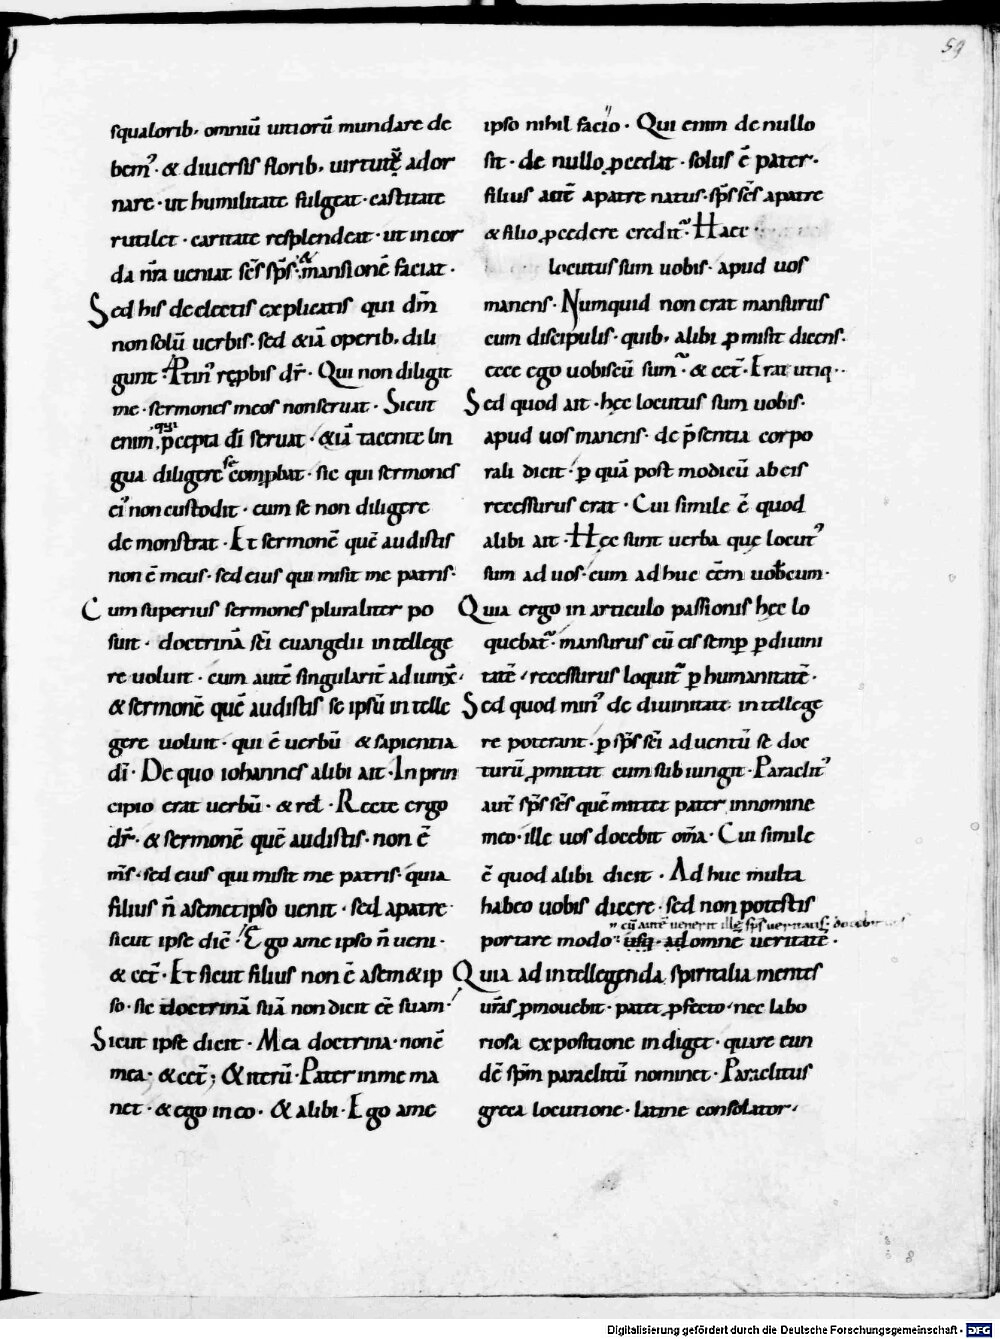 59
squalorib· omniū uitiorū mundare de
bem᾽· & diuersis florib· uirtutū ador
nare· ut humilitate fulgeat· castitate
rutilet· caritate resplendeat· ut in cor
da nr̄a ueniat sc̄s sp̄s· & mansionē faciat·
Sed his de electis explicatis qui dn̄m
non solū uerbis· sed & iā operib· dili
gunt· Ptin᾽ rępbis dr̄· Qui non diligit
me· sermones meos non seruat· Sicut
enim qui p̄cepta dī seruat· & iā tacente lin
gua diligere se comp̱bat· sic qui sermones
ei᾽ non custodit· eum se non diligere
demonstrat· Et sermonē quē audistis
non ē meus· sed eius qui misit me patris·
Cum superius sermones pluraliter po
suit· doctrinā sc̄i euangelii intellege
re uoluit· cum autē singularit̄ adiunx̄·
& sermonē quē audistis se ipsū intelle
gere uoluit· qui ē uerbū & sapientia
dī· De quo iohannes alibi ait· In prin
cipio erat uerbū· & rel̄· Recte ergo
dr̄· & sermonē quē audistis· non ē
m̄s· sed eius qui misit me patris· quia
filius n̄ a semetipso uenit· sed a patre·
sicut ipse dic̄· Ego a me ipso n̄ ueni·
& cet̄· Et sicut filius non ē a sem&ip
so· sic doctrinā suā non dicit eē suam·
Sicut ipse dicit· Mea doctrina· non ē
mea· & cet̄; & iterū· Pater in me ma
net· & ego in eo· & alibi· Ego a me
ipso nihil facio· Qui enim de nullo
sit· de nullo p̱cedat· solus ē pater·
filius autē a patre natus· sp̄s sc̄s a patre
& filio p̱cedere credit᷑· Haec
locutus sum uobis· apud uos
manens· Numquid non erat mansurus
cum discipulis· quib· alibi p̱misit dicens·
ecce ego uobiscū sum᷑· & cet̄· Erat utiq··
Sed quod ait· hęc locutus sum uobis·
apud uos manens· de p̄sentia corpo
rali dicit· p̱ quā post modicū ab eis
recessurus erat· Cui simile ē quod
alibi ait· Hęc sunt uerba quę locut᾽
sum ad uos· cum adhuc eēm uobcum·
Quia ergo in articulo passionis hęc lo
quebat᷑· mansurus cū eis semp̱ p̱ diuini
tatē· recessurus loquit᷑ p̱ humanitatē·
Sed quod min᾽ de diuinitate intellege
re poterant· p̱ sp̄s sc̄i aduentū se doc
turū p̱mittit cum subiungit· Paraclit᾽
autē sp̄s sc̄s quē mittet pater in nomine
meo· ille uos docebit om̄a· Cui simile
ē quod alibi dicit· Adhuc multa
habeo uobis dicere· sed non potestis
cū autē uenerit ille sp̄s ueritatis docebit uos
portare modo· usq· ad omnē ueritatē·
Quia ad intellegenda spiritalia mentes
ur̄as p̱mouebit· patet p̱fecto· nec labo
riosa expositione indiget· quare eun
dē sp̄m paraclitū nominet· Paraclitus
greca locutione· latine consolator·
Digitalisierung gefördert durch die Deutsche Forschungsgemeinschaft - DFG